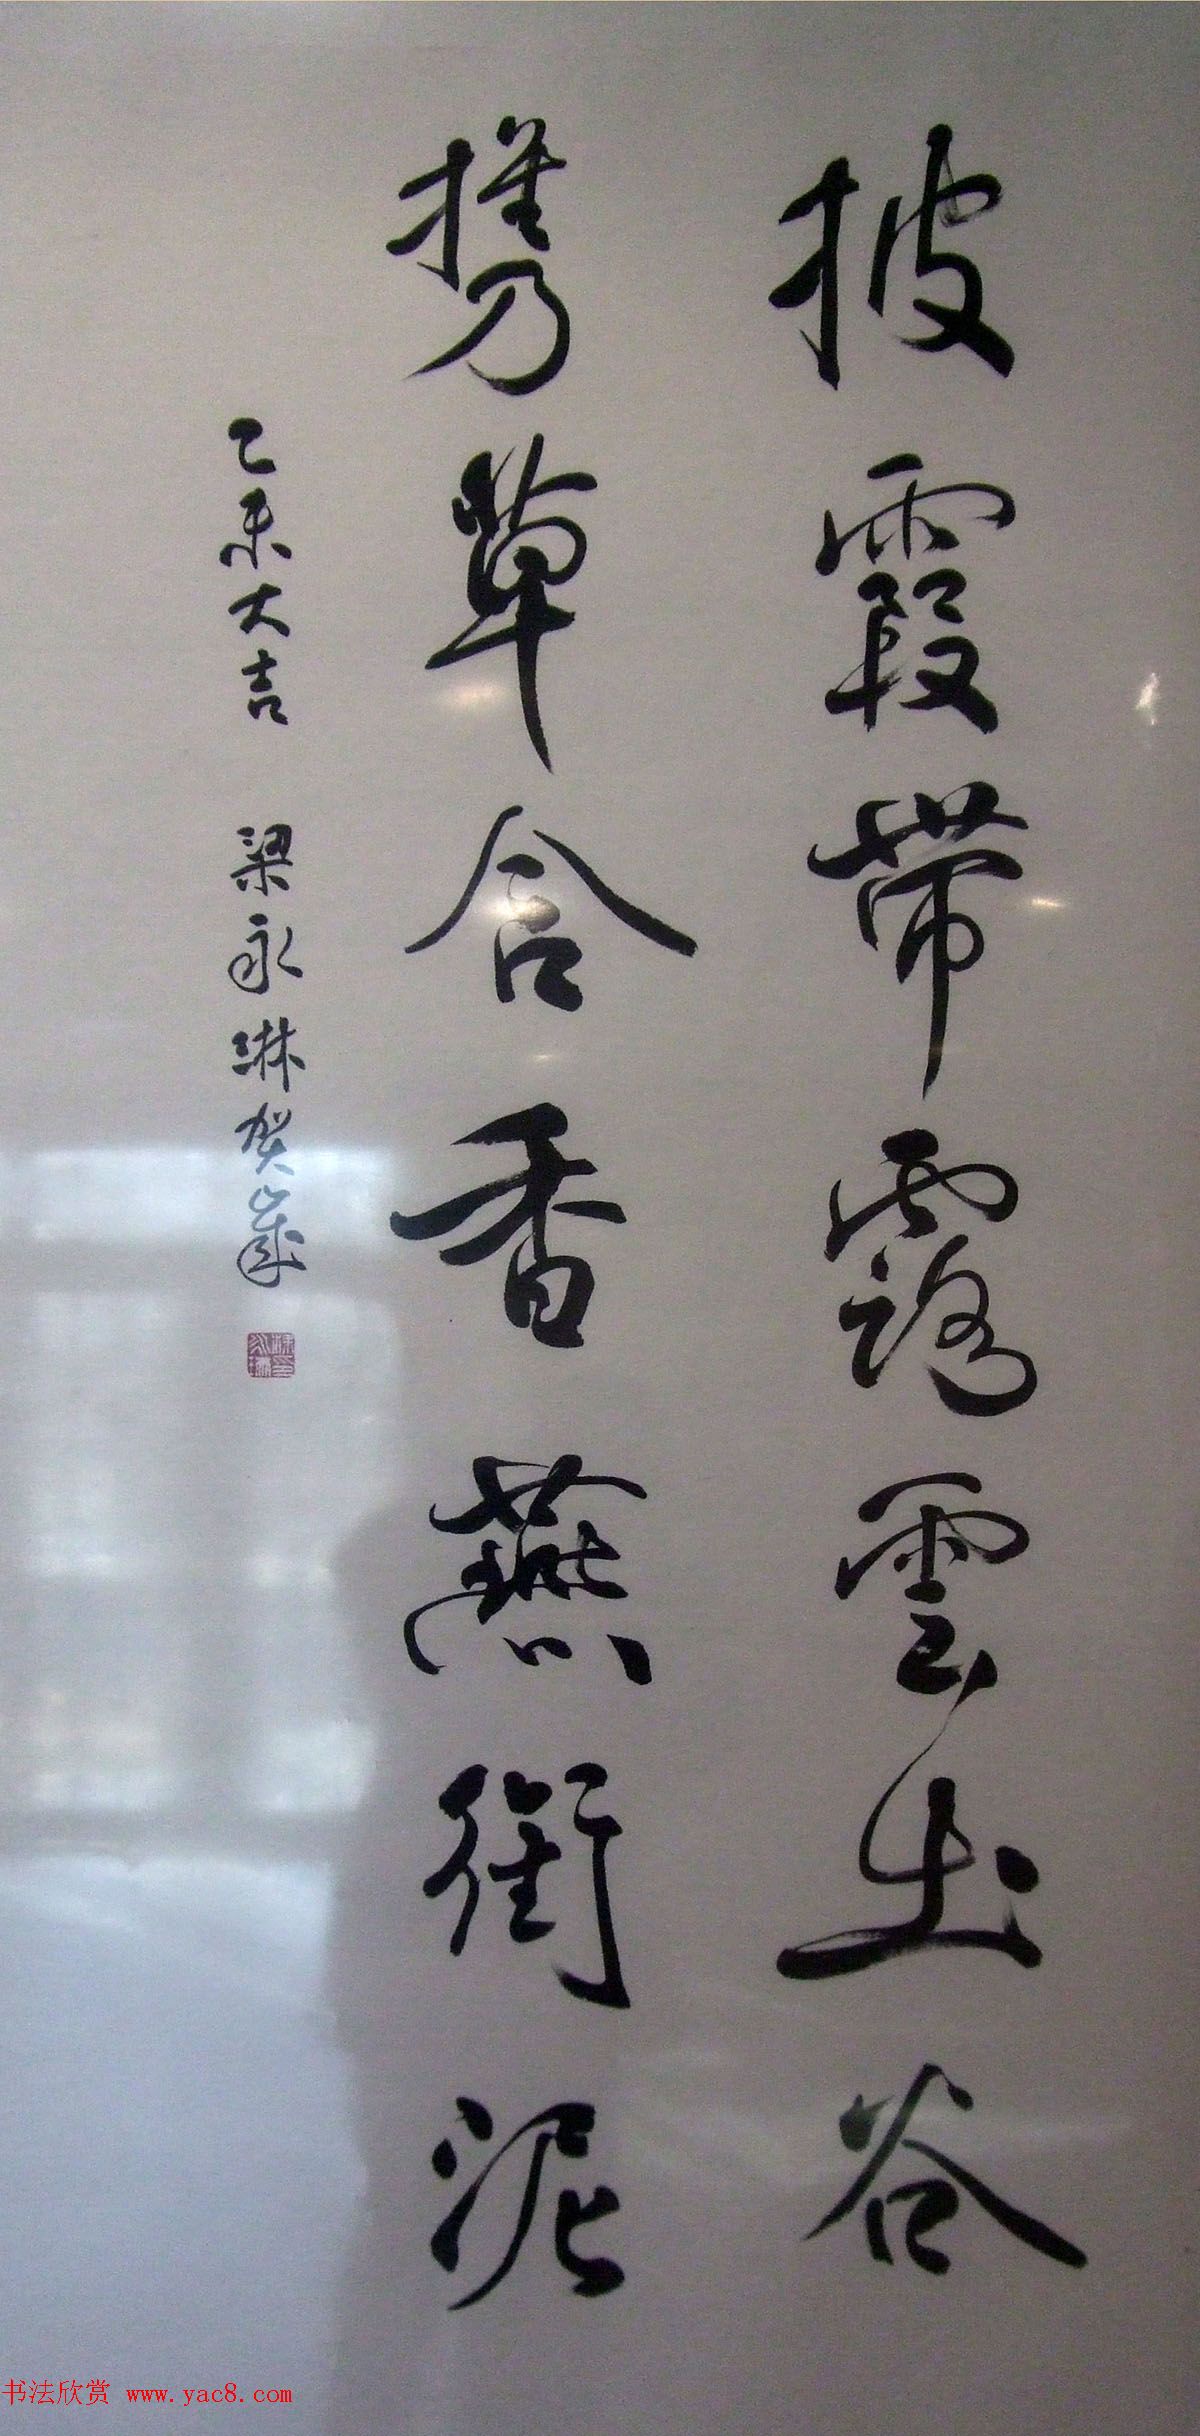 披霞帶露雲出谷
携草含香燕銜泥
乙未大吉 梁永琳贺歲
书法欣赏 www.yac8.com